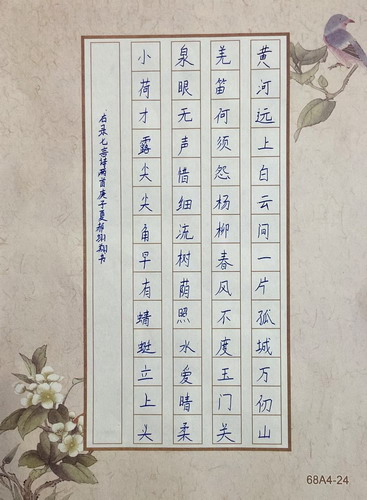 黄河远上白云间一片孤城万仞山
羌笛何须怨杨柳春风不度玉门关
泉眼无声惜细流树荫照水爱晴柔
小荷才露尖尖角早有蜻蜓立上头
右录七言诗两首庚子夏书
68A4-24